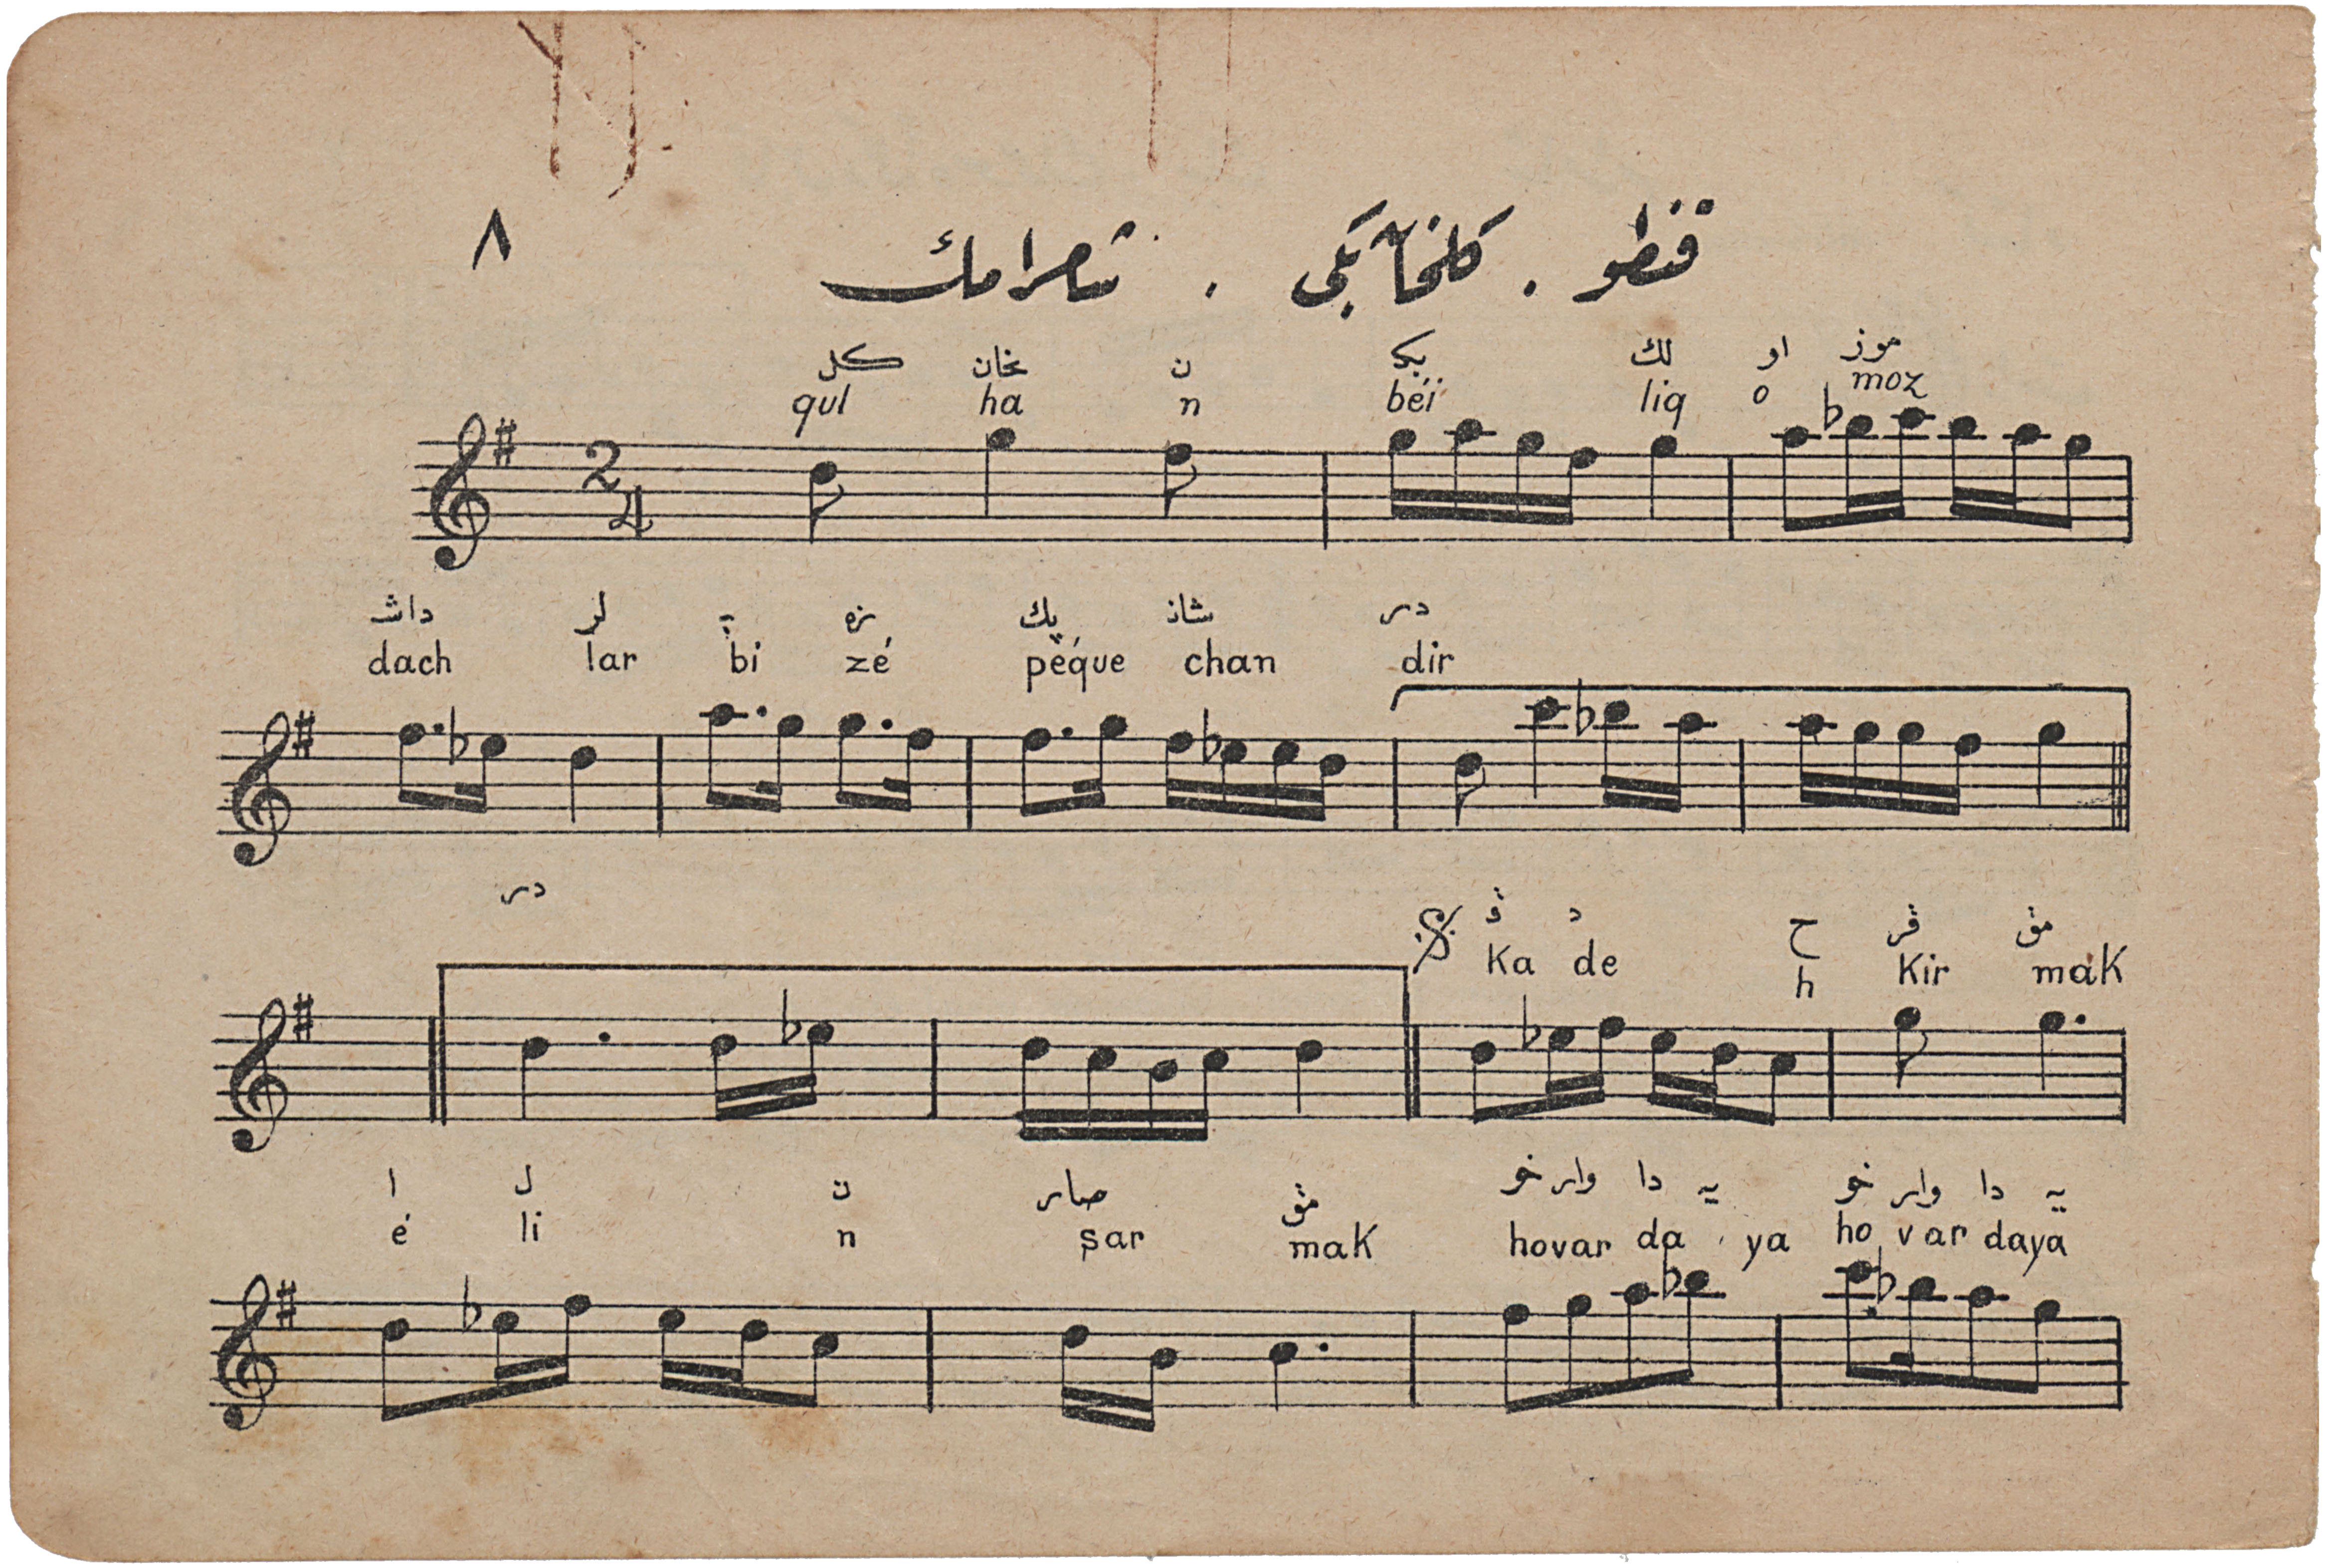 قنطو . كلخان بكی . شامرامك ٨
كل خان ن بك لك او موز
qul ha n béi liq o moz
2 4
داش لر ب زه پك شان در
dach lar bi zé péque chan dir
در ق د ح قر مق
Ka de h Kir mak
ا ل ن صار مق خو وار دا يه خو وار دا يه
é li n sar mak hovar da ya ho var daya